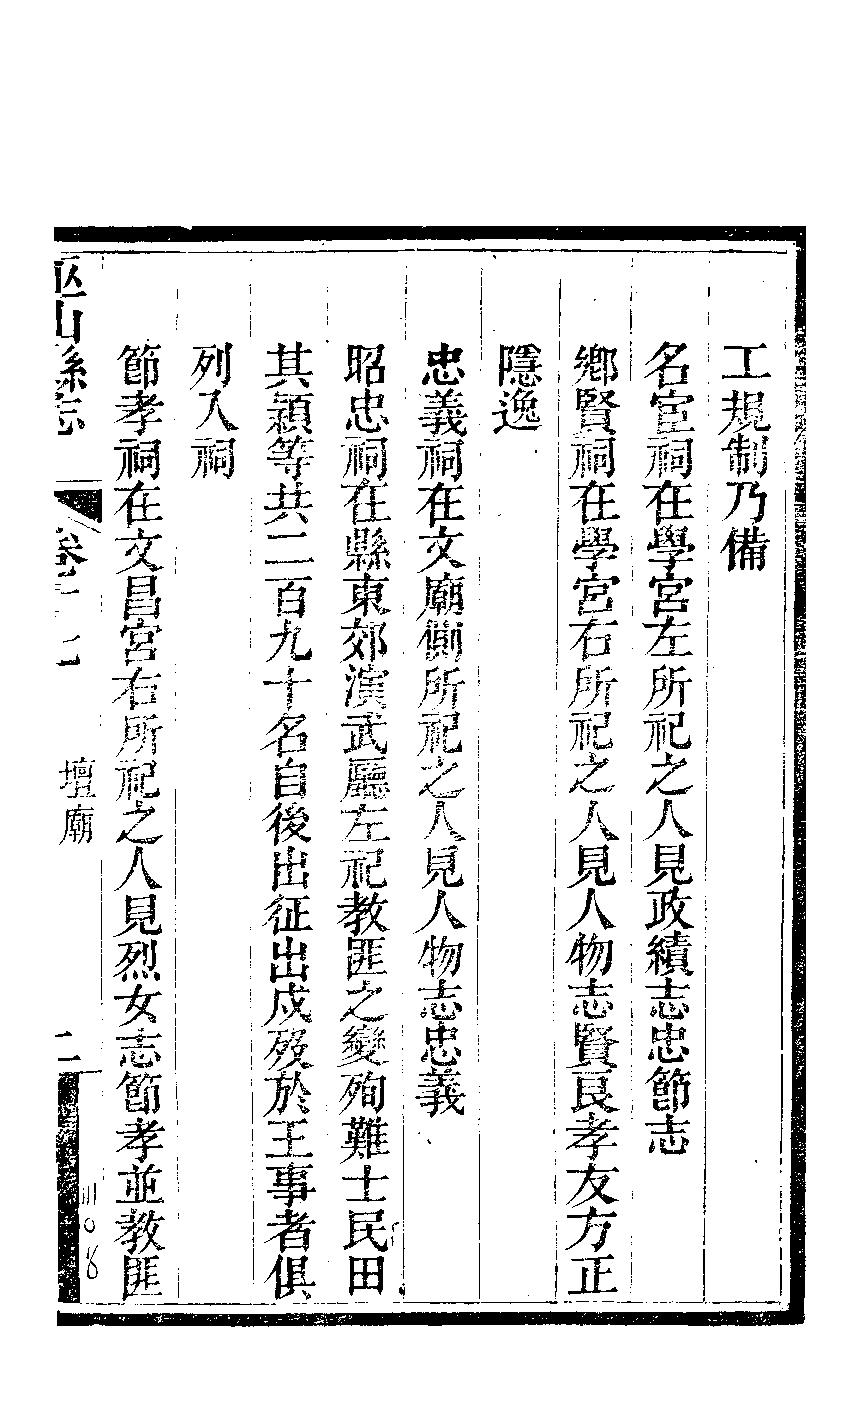 工規制乃備
名宦祠在學宮左所祀之人見政績志忠節志
鄉賢祠在學宮右所祀之人見人物志賢良孝友方正
隱逸
忠義祠在文廟側所祀之人見人物志忠義
昭忠祠在縣東郊演武廳左祀教匪之變殉難士民田
其潁等共二百九十名自後出征出戍歿於王事者俱
列入祠
節孝祠在文昌宮右所祀之人見烈女志節孝並教匪
巫山縣志
壇廟
二